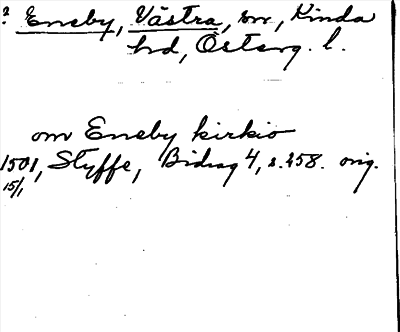 ? Eneby, Västra, sn, Kinda
hd, Österg. l.
om Eneby kirkio
1501, Styffe, Bidrag 4, s. 258. orig.
15/1